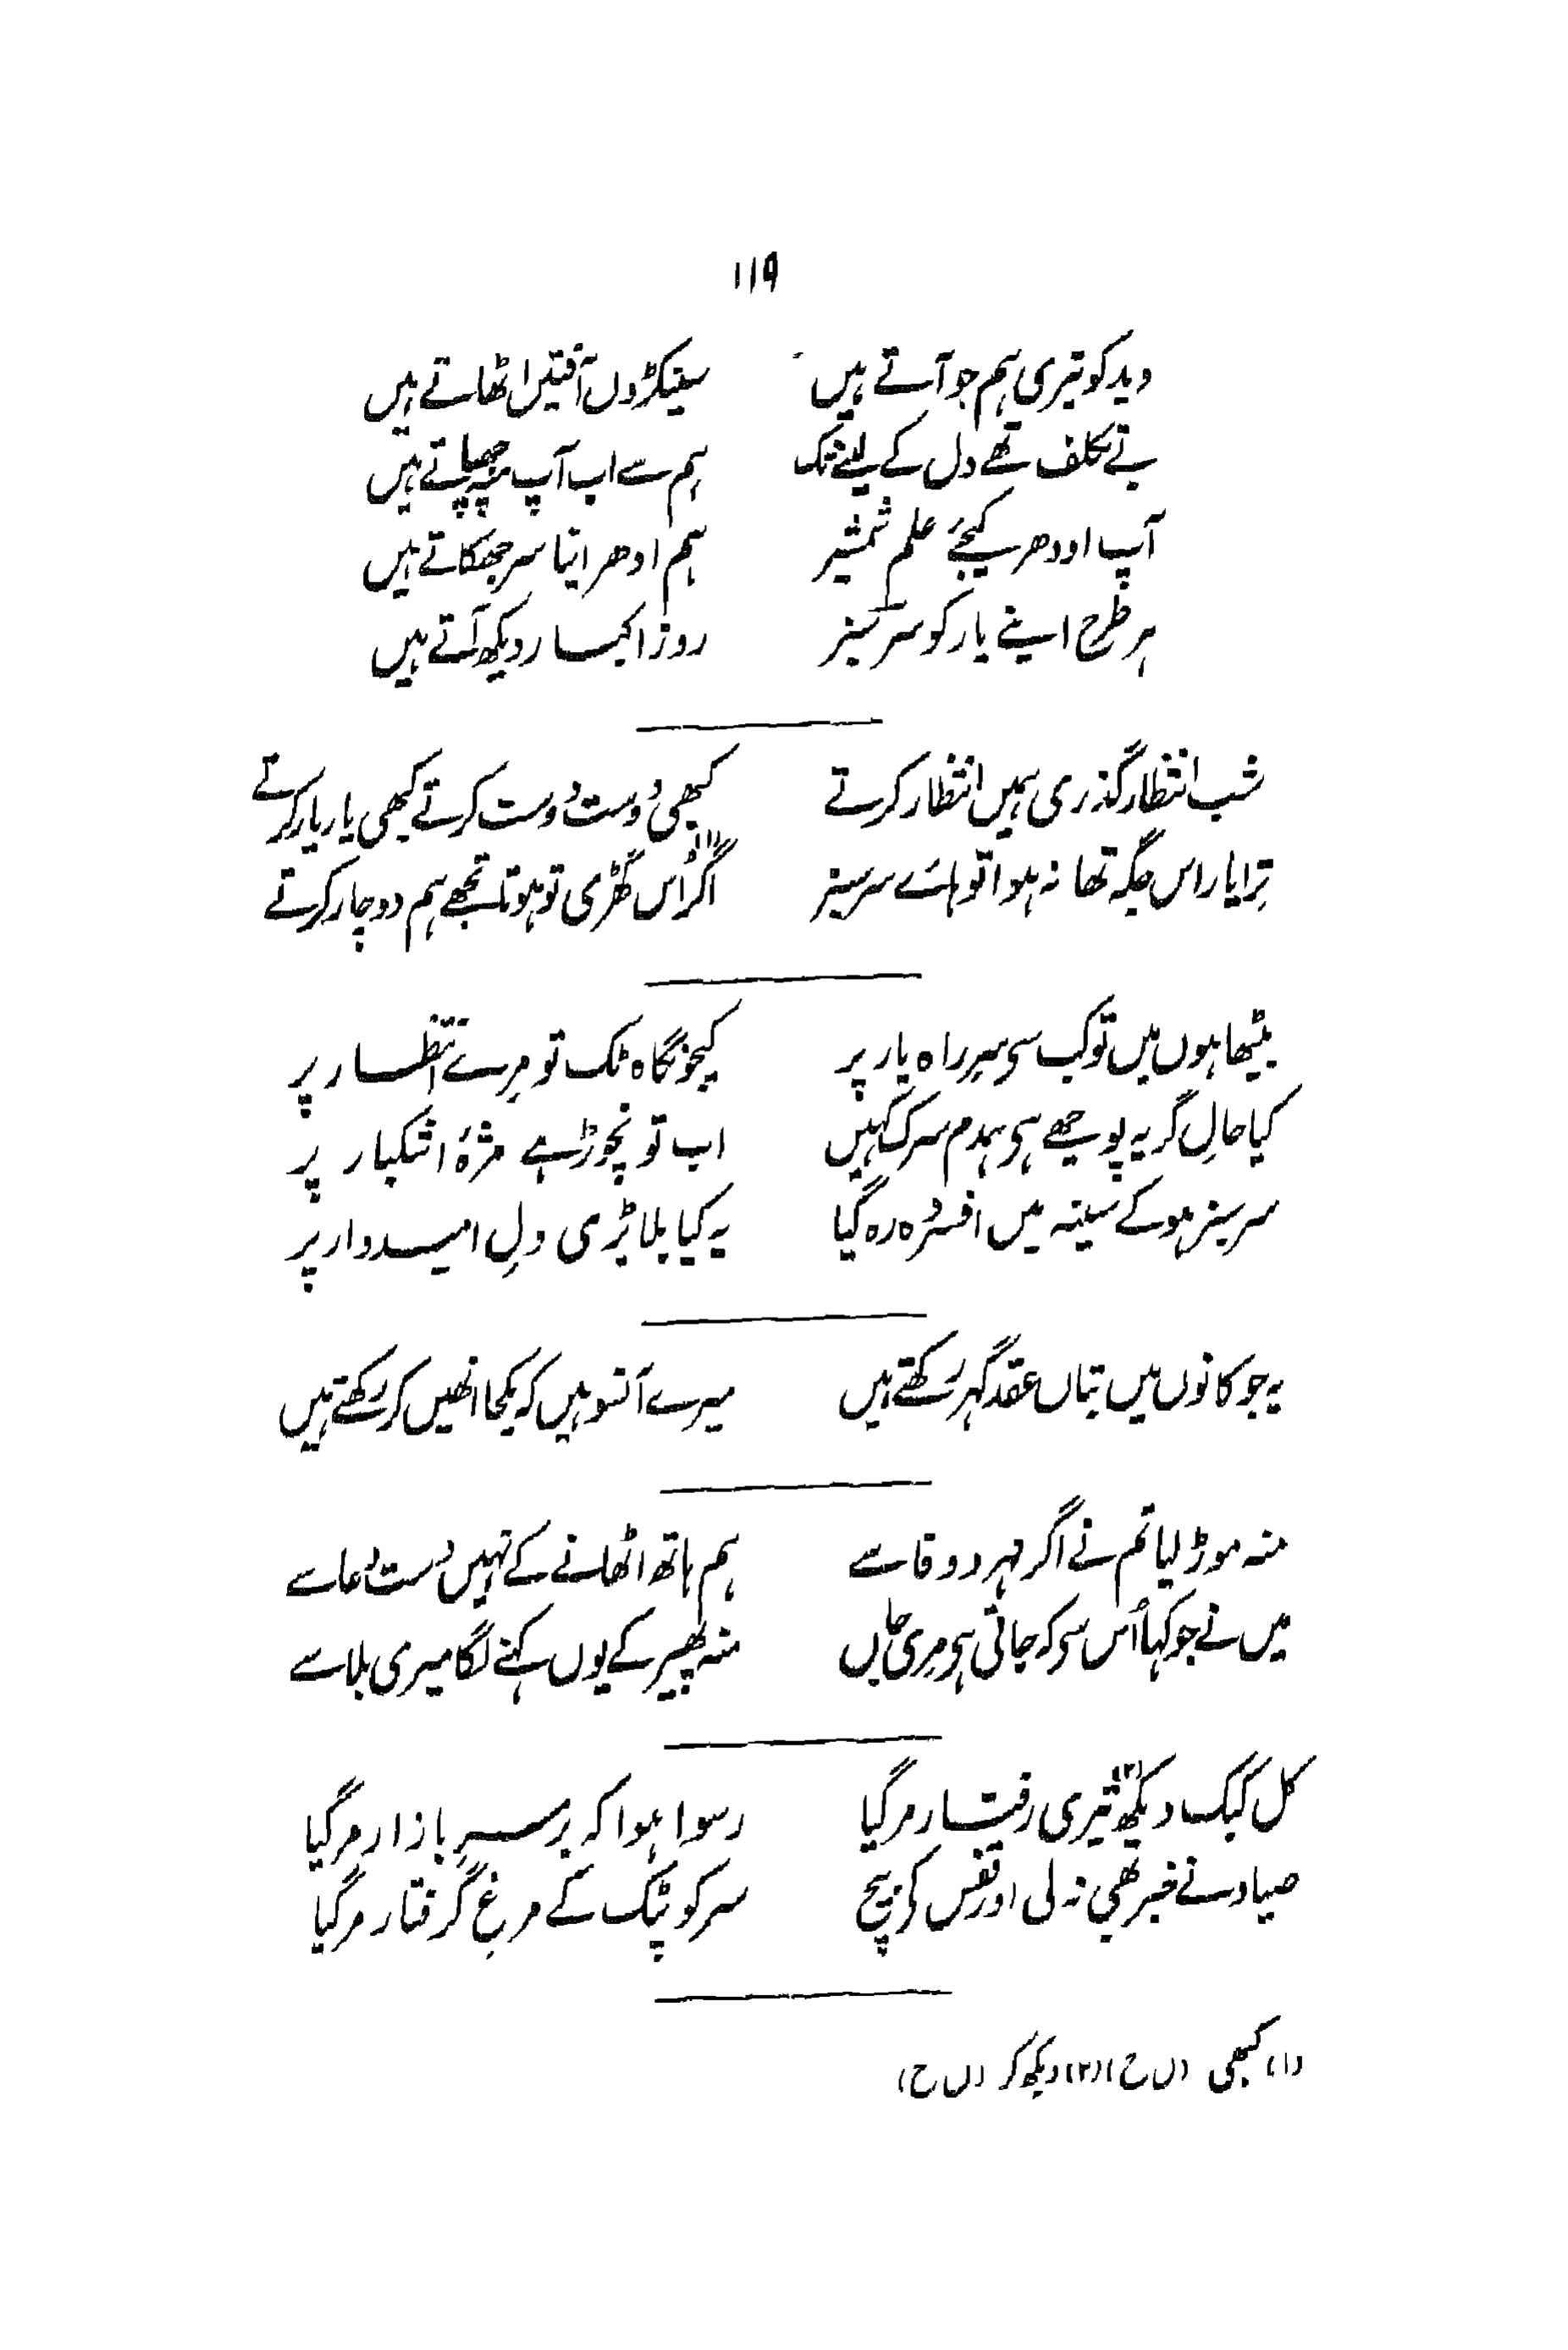 ۱۱۹
دید کو تیری ہم جو آتے ہیں سینکڑوں آفتیں اٹھاتے ہیں
بے تکلف تھے دل کے لینے تک ہم سے اب آپ منہ چھپاتے ہیں
آپ اودھر کیجئے علم شمشیر ہم ادھر اپنا سر جھکاتے ہیں
ہر طرح اپنے یار کو سرسبز روز اکبار دیکھ آتے ہیں
شب انتظار گذری ہمیں انتظار کرتے کبھی دوست دوست کرتے کبھی یار یار کرتے
ترا یار اس جگہ تھا نہ ہوا تو ہائے سرسبز اگر (۱) اُس گھڑی تو ہوتا تجھے ہم دو چار کرتے
بیٹھا ہوں میں تو کب سی سرِ راہ یار پر کیجو نگاہ ٹک تو مرے انتظار پر
کیا حالِ گریہ پوچھے ہی ہمدم سرک کہیں اب تو نچوڑ ہے مژۂ اشکبار پر
سرسبز ہو کے سینہ میں افسردہ رہ گیا یہ کیا بلا پڑی دلِ امیدوار پر
یہ جو کانوں میں بتاں عقد گہر رکھتے ہیں میرے آنسو ہیں کہ یکجا انھیں کر رکھتے ہیں
منہ موڑ لیا تم نے اگر مہر و وفا سے ہم ہاتھ اٹھانے کے نہیں دست دعا سے
میں نے جو کہا اُس سی کہ جاتی ہی مری جاں منہ پھیر کے یوں کہنے لگا میری بلا سے
کل کبک دیکھ (۲) تیری رفتار مر گیا رسوا ہوا کہ برسرِ بازار مر گیا
صیاد نے خبر بھی نہ لی اور قفس کی بیچ سر کو پٹک کے مرغ گرفتار مر گیا
(۱) کبھی (ل ح) (۲) دیکھ کر (ل ح)